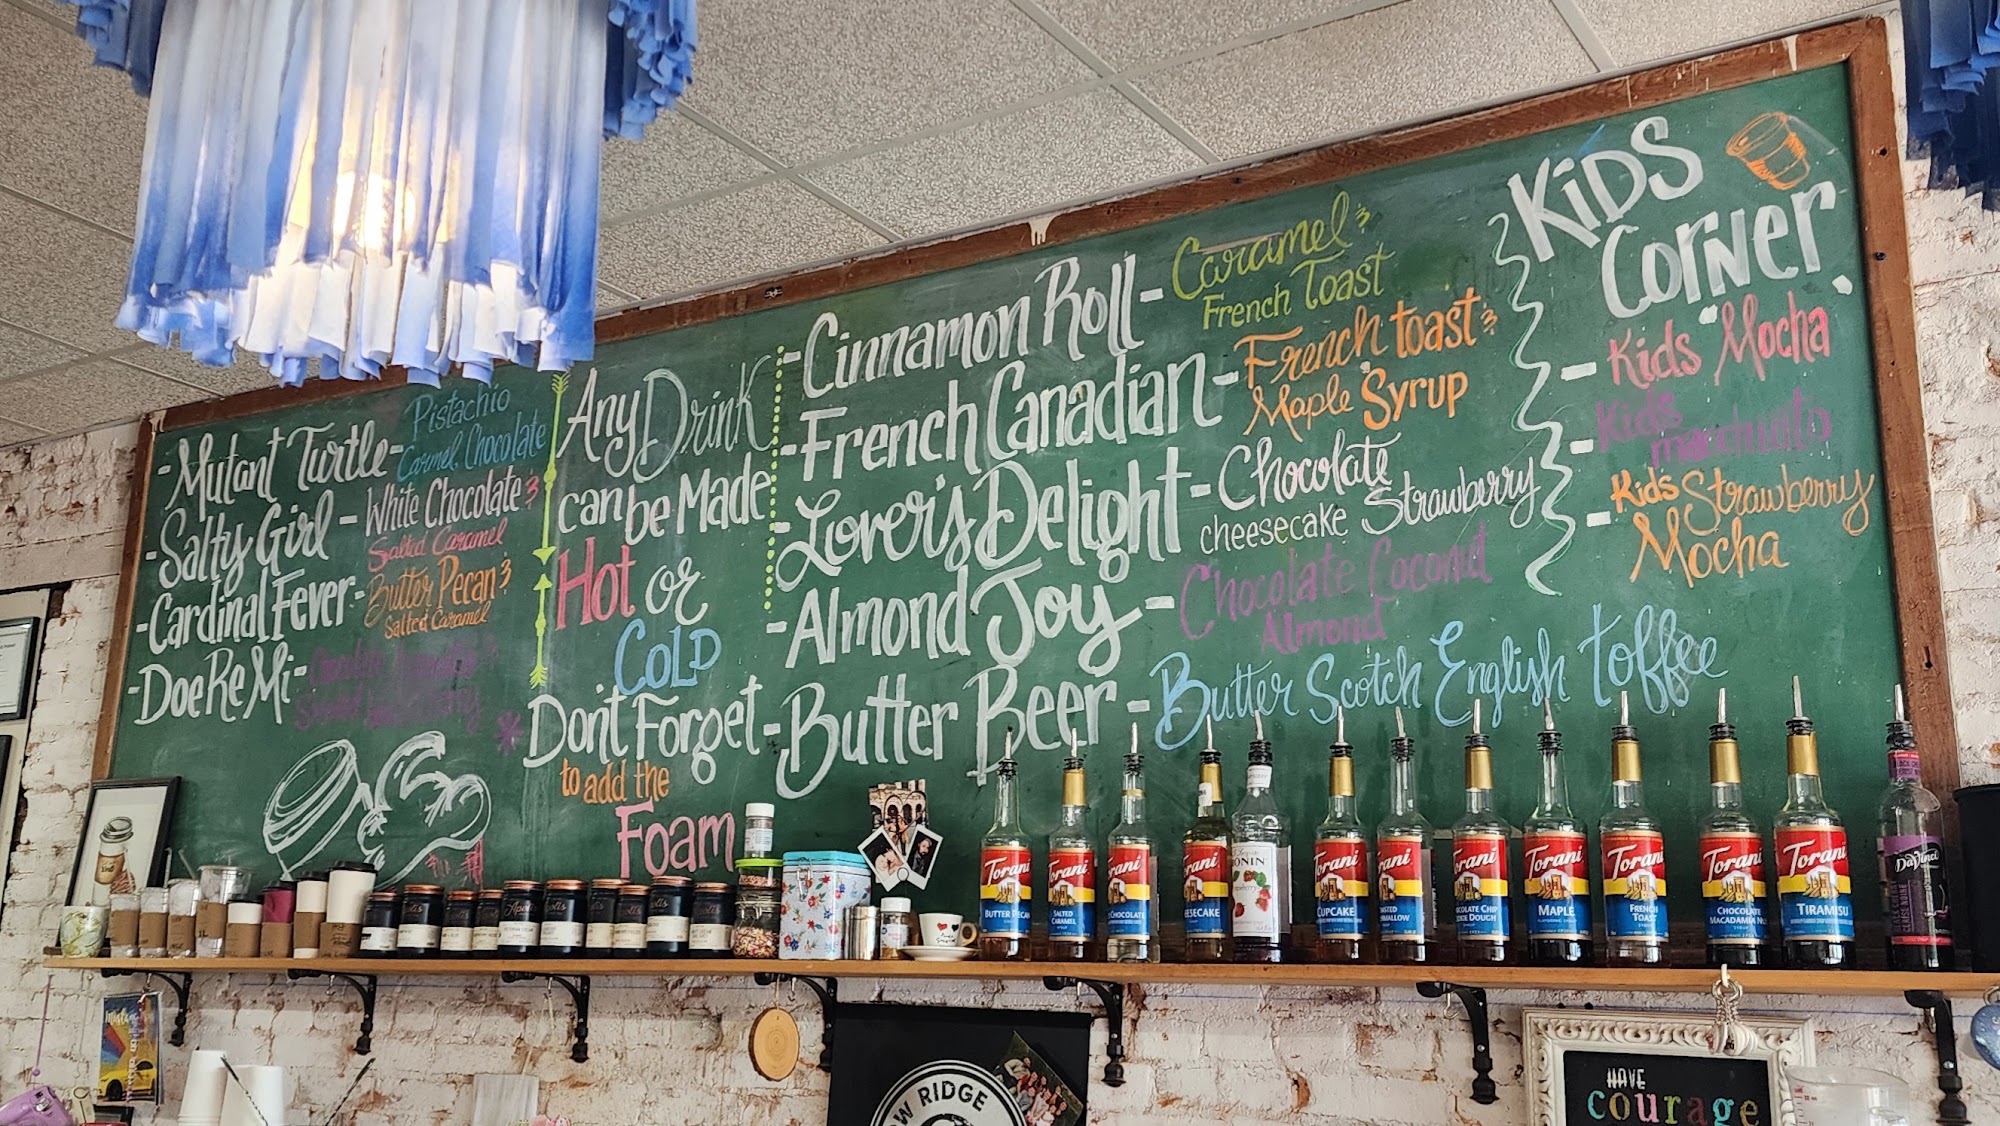 -Mutant Turtle- Pistachio
Carmel, Chocolate
-Salty Girl - White Chocolate &
Salted Caramel
-Cardinal Fever- Butter Pecan &
Salted Caramel
-Doe Re Mi-
Any Drink
can be Made
Hot or
COLD
* Don't Forget
to add the
Foam
-Cinnamon Roll- Caramel &
French Toast
-French Canadian- French toast &
Maple Syrup
-Lover's Delight- Chocolate
cheesecake Strawberry
-Almond Joy- Chocolate Coconut
Almond
-Butter Beer- Butter Scotch English toffee
KiDS
Corner
- Kids Mocha
- Kids macchiato
- Kids Strawberry
Mocha
Torani
BUTTER PECAN
Torani
SALTED
CARAMEL
Torani
CHOCOLATE
Torani
Torani
CUPCAKE
Torani
Torani
Torani
MAPLE
Torani
FRENCH
TOAST
Torani
CHOCOLATE
MACADAMIA NUT
Torani
TIRAMISU
DaVinci
RIDGE
HAVE
courage